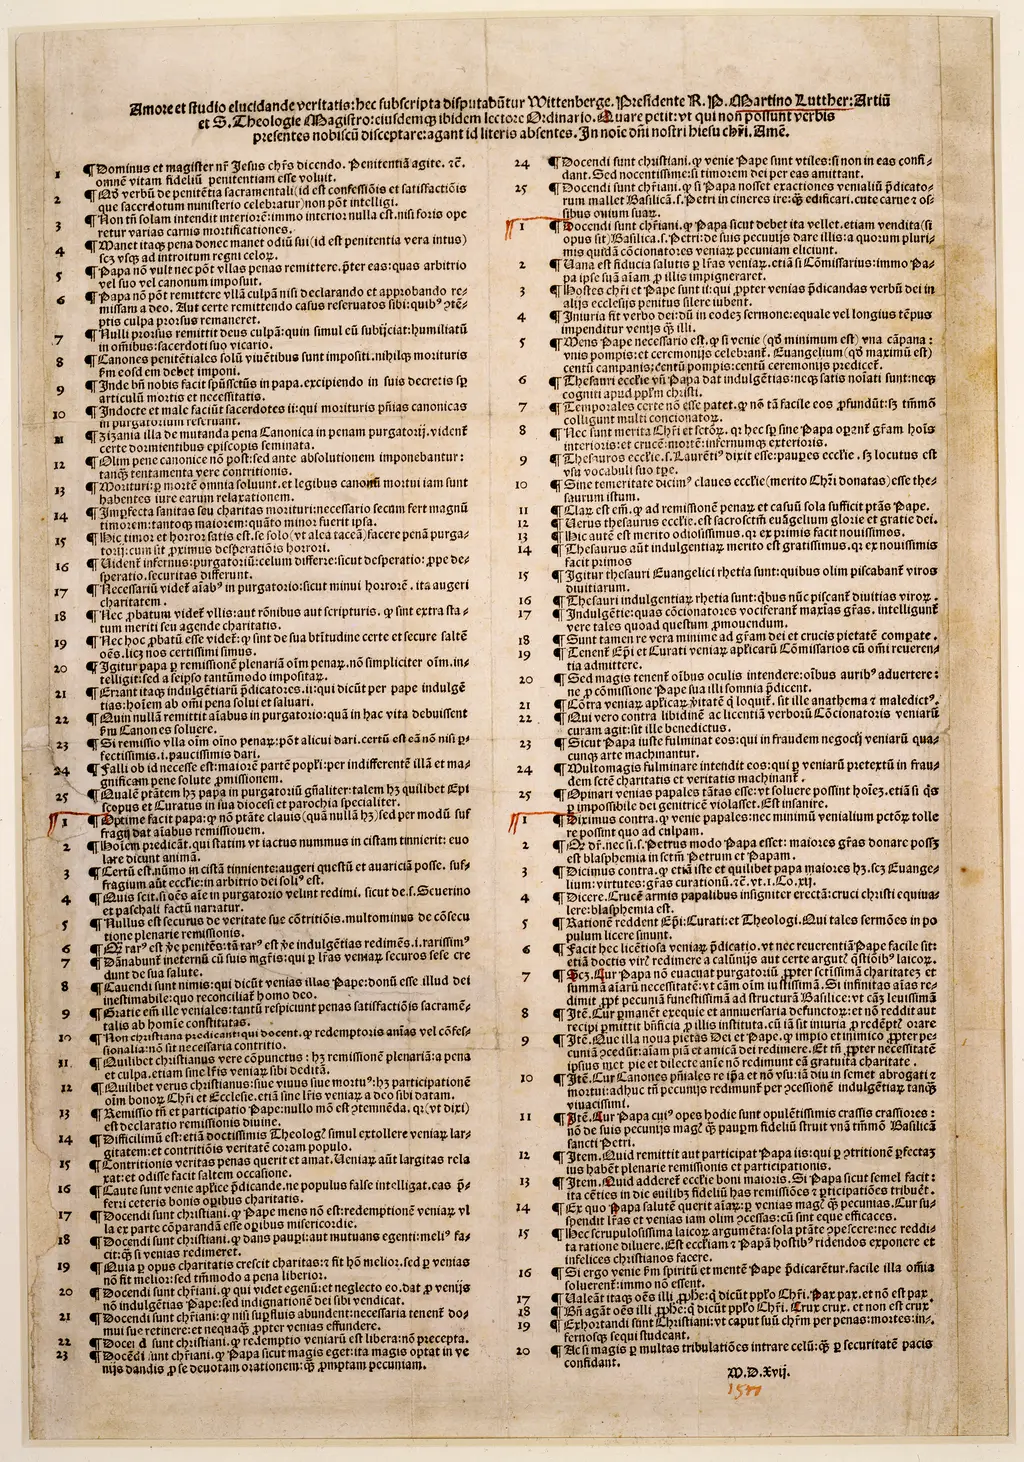 Amore et studio elucidande veritatis: hec subscripta disputabūtur Wittenberge. Presidente R. P. Martino Lutther: Artiū
et S. Theologie Magistro: eiusdemqȝ ibidem lectore Ordinario. Quare petit: vt qui non possunt verbis
presentes nobiscū disceptare: agant id literis absentes. In noīe dñi nostri hiesu chr̄i. Amē.
1 ¶ Dominus et magister nr̄ Jesus chr̄s dicendo. Penitentiā agite. ⁊č.
omnē vitam fideliū penitentiam esse voluit.
2 ¶ Qđ verbū de penitētia sacramentali (id est confessiōis et satisfactiōis
que sacerdotum ministerio celebratur) non pōt intelligi.
3 ¶ Non tn̄ solam intendit interiorē: immo interior nulla est. nisi foris ope
retur varias carnis mortificationes.
4 ¶ Manet itaqȝ pena donec manet odiū sui (id est penitentia vera intus)
scȝ vsqȝ ad introitum regni celoꝝ.
5 ¶ Papa nō vult nec pōt vllas penas remittere. p̄ter eas: quas arbitrio
vel suo vel canonum imposuit.
6 ¶ Papa nō pōt remittere vllā culpā nisi declarando et approbando re-
missam a deo. Aut certe remittendo casus reservatos sibi: quibꝰ ꝯtē-
ptis culpa prorsus remaneret.
7 ¶ Nulli prorsus remittit deus culpā: quin simul eū subijciat: humiliatū
in oīnibus: sacerdoti suo vicario.
8 ¶ Canones penitētiales solū viuētibus sunt impositi. nihilqȝ morituris
ẜm eosdem debet imponi.
9 ¶ Inde bn̄ nobis facit spūssctūs in papa. excipiendo in suis decretis sꝑ
articulū mortis et necessitatis.
10 ¶ Indocte et male faciūt sacerdotes ii: qui morituris pn̄ias canonicas
in purgatorium reseruant.
11 ¶ Zizania illa de mutanda pena Canonica in penam purgatorij. videnƭ
certe dormientibus episcopis seminata.
12 ¶ Olim pene canonice nō post: sed ante absolutionem imponebantur:
tanqȝ tentamenta vere contritionis.
13 ¶ Morituri: ꝑ mortē omnia soluunt. et legibus canonū mortui iam sunt
habentes iure earum relaxationem.
14 ¶ Imꝑfecta sanitas seu charitas morituri: necessario secum fert magnū
timorem: tantoqȝ maiorem: quāto minor fuerit ipsa.
15 ¶ Hic timor et horror satis est. se solo (vt alia taceā) facere penā purga-
torij: cum sit ꝓximus desperatiōis horrori.
16 ¶ Videnƭ infernus: purgatoriū: celum differre: sicut desperatio: ꝓpe de-
speratio. securitas differunt.
17 ¶ Necessariū videƭ aīabꝰ in purgatorio: sicut minui horrorē. ita augeri
charitatem.
18 ¶ Nec ꝓbatum videƭ vllis: aut rōnibus aut scripturis. ꝙ sint extra sta-
tum meriti seu agende charitatis.
19 ¶ Nec hoc ꝓbatū esse videƭ: ꝙ sint de sua btītudine certe et secure saltē
oēs. licȝ nos certissimi simus.
20 ¶ Igitur papa ꝑ remissionē plenariā oīm penaꝝ. nō simpliciter oīm. in-
telligit: sed a seipso tantūmodo impositaꝝ.
21 ¶ Errant itaqȝ indulgētiarū p̄dicatores. ii: qui dicūt per pape indulgē
tias: hoīem ab omī pena solui et saluari.
22 ¶ Quin nullā remittit aīabus in purgatorio: quā in hac vita debuissent
ẜm Canones soluere.
23 ¶ Si remissio vlla oīm oīno penaꝝ: pōt alicui dari. certū est eā nō nisi ꝑ-
fectissimis. i. paucissimis dari.
24 ¶ Falli ob id necesse est: maiorē partē popłi: per indifferentē illā et ma-
gnificam pene solute ꝓmissionem.
25 ¶ Qualē ptātem hȝ papa in purgatoriū gn̄aliter: talem hȝ quilibet Epi
scopus et Curatus in sua diocesi et parochia specialiter.
1 ¶ Optime facit papa: ꝙ nō ptāte clauis (quā nullā hȝ) sed per modū suf
fragij dat aīabus remissionem.
2 ¶ Hoīem predicāt. qui statim vt iactus nummus in cistam tinnierit: euo
lare dicunt animā.
3 ¶ Certū est. nūmo in cistā tinniente: augeri questū et auariciā posse. suf-
fragium aūt ecclīe: in arbitrio dei soliꝰ est.
4 ¶ Quis scit. si oēs aīe in purgatorio velint redimi. sicut de. s. Seuerino
et paschali factū narratur.
5 ¶ Nullus est securus de veritate sue cōtritiōis. multominus de cōsecu
tione plenarie remissionis.
6 ¶ Qȝ rarꝰ est v̄e penitēs: tā rarꝰ est v̄e indulgētias redimēs. i. rarissimꝰ
7 ¶ Dānabunƭ ineternū cū suis mgr̄is: qui ꝑ lr̄as veniaꝝ securos sese cre
dunt de sua salute.
8 ¶ Cauendi sunt nimis: qui dicūt venias illas Pape: donū esse illud dei
inestimabile: quo reconciliaƭ homo deo.
9 ¶ Gratie em̄ ille veniales: tantū respiciunt penas satisfactiōis sacramē-
talis ab homīe constitutas.
10 ¶ Non christiana predicant: qui docent. ꝙ redempturis aīas vel cōfes-
sionalia: nō sit necessaria contritio.
11. ¶ Quilibet christianus vere cōpunctus: hȝ remissionē plenariā: a pena
et culpa. etiam sine lr̄is veniaꝝ sibi debitā.
12 ¶ Quilibet verus christianus: siue viuus siue mortuꝰ: hȝ participationē
oīm bonoꝝ Chr̄i et Ecclesie. etiā sine lr̄is veniaꝝ a deo sibi datam.
13 ¶ Remissio tn̄ et participatio Pape: nullo mō est ꝯtemnēda. qꝛ (vt dixi)
est declaratio remissionis diuine.
14 ¶ Difficilimū est: etiā doctissimis Theologꝭ simul extollere veniaꝝ lar-
gitatem: et contritiōis veritatē coram populo.
15 ¶ Contritionis veritas penas querit et amat. Veniaꝝ aūt largitas rela
xat: et odisse facit saltem occasione.
16 ¶ Caute sunt venie apłice p̄dicande. ne populus false intelligat. eas p̄-
ferri ceteris bonis oꝑibus charitatis.
17 ¶ Docendi sunt christiani. ꝙ Pape mens nō est: redemptionē veniaꝝ vl
la ex parte cōparandā esse oꝑibus misericordie.
18 ¶ Docendi sunt christiani. ꝙ dans pauꝑi: aut mutuans egenti: meliꝰ fa-
cit: qȝ si venias redimeret.
19 ¶ Quia ꝑ opus charitatis crescit charitas: ⁊ fit hō melior. sed ꝑ venias
nō fit melior: sed tm̄modo a pena liberior.
20 ¶ Docendi sunt chr̄iani. ꝙ qui videt egenū: et neglecto eo. dat ꝓ venijs
nō indulgētias Pape: sed indignationē dei sibi vendicat.
21 ¶ Docendi sunt chr̄iani: ꝙ nisi suꝑfluis abundent: necessaria tenenƭ do-
mui sue retinere: et nequaqȝ ꝓpter venias effundere.
22 ¶ Docendi sunt christiani. ꝙ redemptio veniarū est libera: nō precepta.
23 ¶ Docēdi sunt chr̄iani. ꝙ Papa sicut magis eget: ita magis optat in ve
nijs dandis ꝓ se deuotam orationem: qȝ ꝓmptam pecuniam.
24 ¶ Docendi sunt christiani. ꝙ venie Pape sunt vtiles: si non in eas confi-
dant. Sed nocentissime: si timorem dei per eas amittant.
25 ¶ Docendi sunt chr̄iani. ꝙ si Papa nosset exactiones venialiū p̄dicato-
rum mallet Basilicā. s. Petri in cineres ire: qȝ edificari. cute carne ⁊ os-
sibus ouium suaꝝ.
1 ¶ Docendi sunt chr̄iani. ꝙ Papa sicut debet ita vellet. etiam vendita (si
opus sit) Basilica. s. Petri: de suis pecunijs dare illis: a quorum pluri-
mis quidā cōcionatores veniaꝝ pecuniam eliciunt.
2 ¶ Vana est fiducia salutis ꝑ lr̄as veniaꝝ. etiā si Cōmissarius: immo Pa-
pa ipse suā aīam ꝓ illis impigneraret.
3 ¶ Hostes chr̄i et Pape sunt ii: qui ꝓpter venias p̄dicandas verbū dei in
alijs ecclesijs penitus silere iubent.
4 ¶ Iniuria fit verbo dei: dū in eodeȝ sermone: equale vel longius tēpus
impenditur venijs qȝ illi.
5 ¶ Mens Pape necessario est. ꝙ si venie (qđ minimum est) vna cāpana:
vnis pompis: et ceremonijs celebranƭ. Euangelium (qđ maximū est)
centū campanis: centū pompis: centū ceremonijs prediceƭ.
6 ¶ Thesauri ecclīe vn̄ Papa dat indulgētias: neqȝ satis noīati sunt: neqȝ
cogniti apud ppłm christi.
7 ¶ Temporales certe nō esse patet. ꝙ nō tā facile eos ꝓfundūt: sȝ tm̄mō
colligunt multi concionatoꝝ.
8 ¶ Nec sunt merita Chr̄i et sctōꝝ. qꝛ hec sꝑ sine Papa oꝑanƭ gr̄am hoīs
interioris: et crucē: mortē: infernumqȝ exterioris.
9 ¶ Thesauros ecclīe. s. Laurētiꝰ dixit esse: pauꝑes ecclīe. sȝ locutus est
vsu vocabuli suo tꝑe.
10 ¶ Sine temeritate dicimꝰ claues ecclīe (merito Chr̄i donatas) esse the-
saurum istum.
11 ¶ Claꝝ est em̄. ꝙ ad remissionē penaꝝ et casuū sola sufficit ptās Pape.
12 ¶ Verus thesaurus ecclīe. est sacrosctm̄ euāgelium glorie et gratie dei.
13 ¶ Hic autē est merito odiosissimus. qꝛ ex primis facit nouissimos.
14 ¶ Thesaurus aūt indulgentiaꝝ merito est gratissimus. qꝛ ex nouissimis
facit primos
15 ¶ Igitur thesauri Euangelici rhetia sunt: quibus olim piscabanƭ viros
diuitiarum.
16 ¶ Thesauri indulgentiaꝝ rhetia sunt: qͥbus nūc piscanƭ diuitias viroꝝ.
17 ¶ Indulgētie: quas cōcionatores vociferanƭ maxīas gr̄as. intelligunƭ
vere tales quoad questum ꝓmouendum.
18 ¶ Sunt tamen re vera minime ad gr̄am dei et crucis pietatē compate.
19 ¶ Tenenƭ Epī et Curati veniaꝝ apłicarū Cōmissarios cū omī reueren-
tia admittere.
20 ¶ Sed magis tenenƭ oībus oculis intendere: oībus auribꝰ aduertere:
ne ꝓ cōmissione Pape sua illi somnia p̄dicent.
21 ¶ Cōtra veniaꝝ apłicaꝝ v̄itatē q̄ loquiƭ. sit ille anathema ⁊ maledictꝰ.
22 ¶ Qui vero contra libidinē ac licentiā verborū Cōcionatoris veniarū
curam agit: sit ille benedictus.
23 ¶ Sicut Papa iuste fulminat eos: qui in fraudem negocij veniarū qua-
cunqȝ arte machinantur.
24 ¶ Multomagis fulminare intendit eos: qui ꝑ veniarū pretextū in frau-
dem sctē charitatis et veritatis machinanƭ.
25 ¶ Opinari venias papales tātas esse: vt soluere possint hoīeȝ. etiā si qͥs
ꝑ impossibile dei genitricē violasset. Est insanire.
1 ¶ Diximus contra. ꝙ venie papales: nec minimū venialium pctōꝝ tolle
re possint quo ad culpam.
2 ¶ Qꝙ dr̄. nec si. s. Petrus modo Papa esset: maiores gr̄as donare possȝ
est blasphemia in sctm̄ Petrum et Papam.
3 ¶ Dicimus contra. ꝙ etiā iste et quilibet papa maiores hȝ. scȝ Euange-
lium: virtutes: gr̄as curationū. ⁊č. vt. i. Co. xij.
4 ¶ Dicere. Crucē armis papalibus insigniter erectā: cruci christi equiua-
lere: blasphemia est.
5 ¶ Rationē reddent Epī: Curati: et Theologi. Qui tales sermōes in po
pulum licere sinunt.
6 ¶ Facit hec licētiosa veniaꝝ p̄dicatio. vt nec reuerentiā Pape facile sit:
etiā doctis virꝭ redimere a calūnijs aut certe argutꝭ q̄stiōibꝰ laicoꝝ.
7 ¶ Scȝ. Cur Papa nō euacuat purgatoriū ꝓpter sctissimā charitateȝ et
summā aīarū necessitatē: vt cām oīm iustissimā. Si infinitas aīas re-
dimit ꝓpt̄ pecuniā funestissimā ad structurā Basilice: vt cāȝ leuissimā
8 ¶ Itē. Cur ꝑmanēt exequie et anniuersaria defunctoꝝ: et nō reddit aut
recipi ꝑmittit bn̄ficia ꝓ illis instituta. cū iā sit iniuria ꝓ redēptꝭ orare
9 ¶ Itē. Que illa noua pietas Dei et Pape. ꝙ impio et inimico ꝓpter pe-
cuniā ꝯcedūt: aīam piā et amicā dei redimere. Et tn̄ ꝓpter necessitatē
ipsius met pie et dilecte aīe nō redimunt eā gratuita charitate.
10 ¶ Itē. Cur Canones pn̄iales re ip̄a et nō vsu: iā diu in semet abrogati ⁊
mortui: adhuc tn̄ pecunijs redimunƭ per ꝯcessionē indulgētiaꝝ tanqȝ
viuacissimi.
11 ¶ Itē. Cur Papa cuiꝰ opes hodie sunt opulētissimis crassis crassiores:
nō de suis pecunijs magꝭ qȝ pauꝑum fideliū struit vnā tm̄mō Basilicā
sancti Petri.
12 ¶ Item. Quid remittit aut participat Papa iis: qui ꝑ ꝯtritionē ꝑfectaȝ
ius habēt plenarie remissionis et participationis.
13 ¶ Item. Quid adderet ecclīe boni maioris. Si Papa sicut semel facit:
ita cēties in die cuilibȝ fideliū has remissiōes ⁊ ꝑticipatiōes tribuēt.
14 ¶ Ex quo Papa salutē querit aīaꝝ: ꝑ venias magꝭ qȝ pecunias. Cur su-
spendit lr̄as et venias iam olim ꝯcessas: cū sint eque efficaces.
15 ¶ Hec scrupulosissima laicoꝝ argumēta: sola ptāte ꝯpescere: nec reddi-
ta ratione diluere. Est ecclīam ⁊ Papā hostibꝰ ridendos exponere et
infelices christianos facere.
16 ¶ Si ergo venie ẜm spiritū et mentē Pape p̄dicarētur. facile illa omīa
soluerenƭ: immo nō essent.
17 ¶ Valeāt itaqȝ oēs illi ꝓphe: q̄ dicūt ppło Chr̄i. Pax pax. et nō est pax
18 ¶ Bn̄ agāt oēs illi ꝓphe: q̄ dicūt ppło Chr̄i. Crux crux. et non est crux
19 ¶ Exhortandi sunt Christiani: vt caput suū chr̄m per penas: mortes: in-
fernosqȝ sequi studeant.
20 ¶ Ac si magis ꝑ multas tribulatiōes intrare celū: qȝ ꝑ securitatē pacis
confidant.
M. D. Xvij.
1517